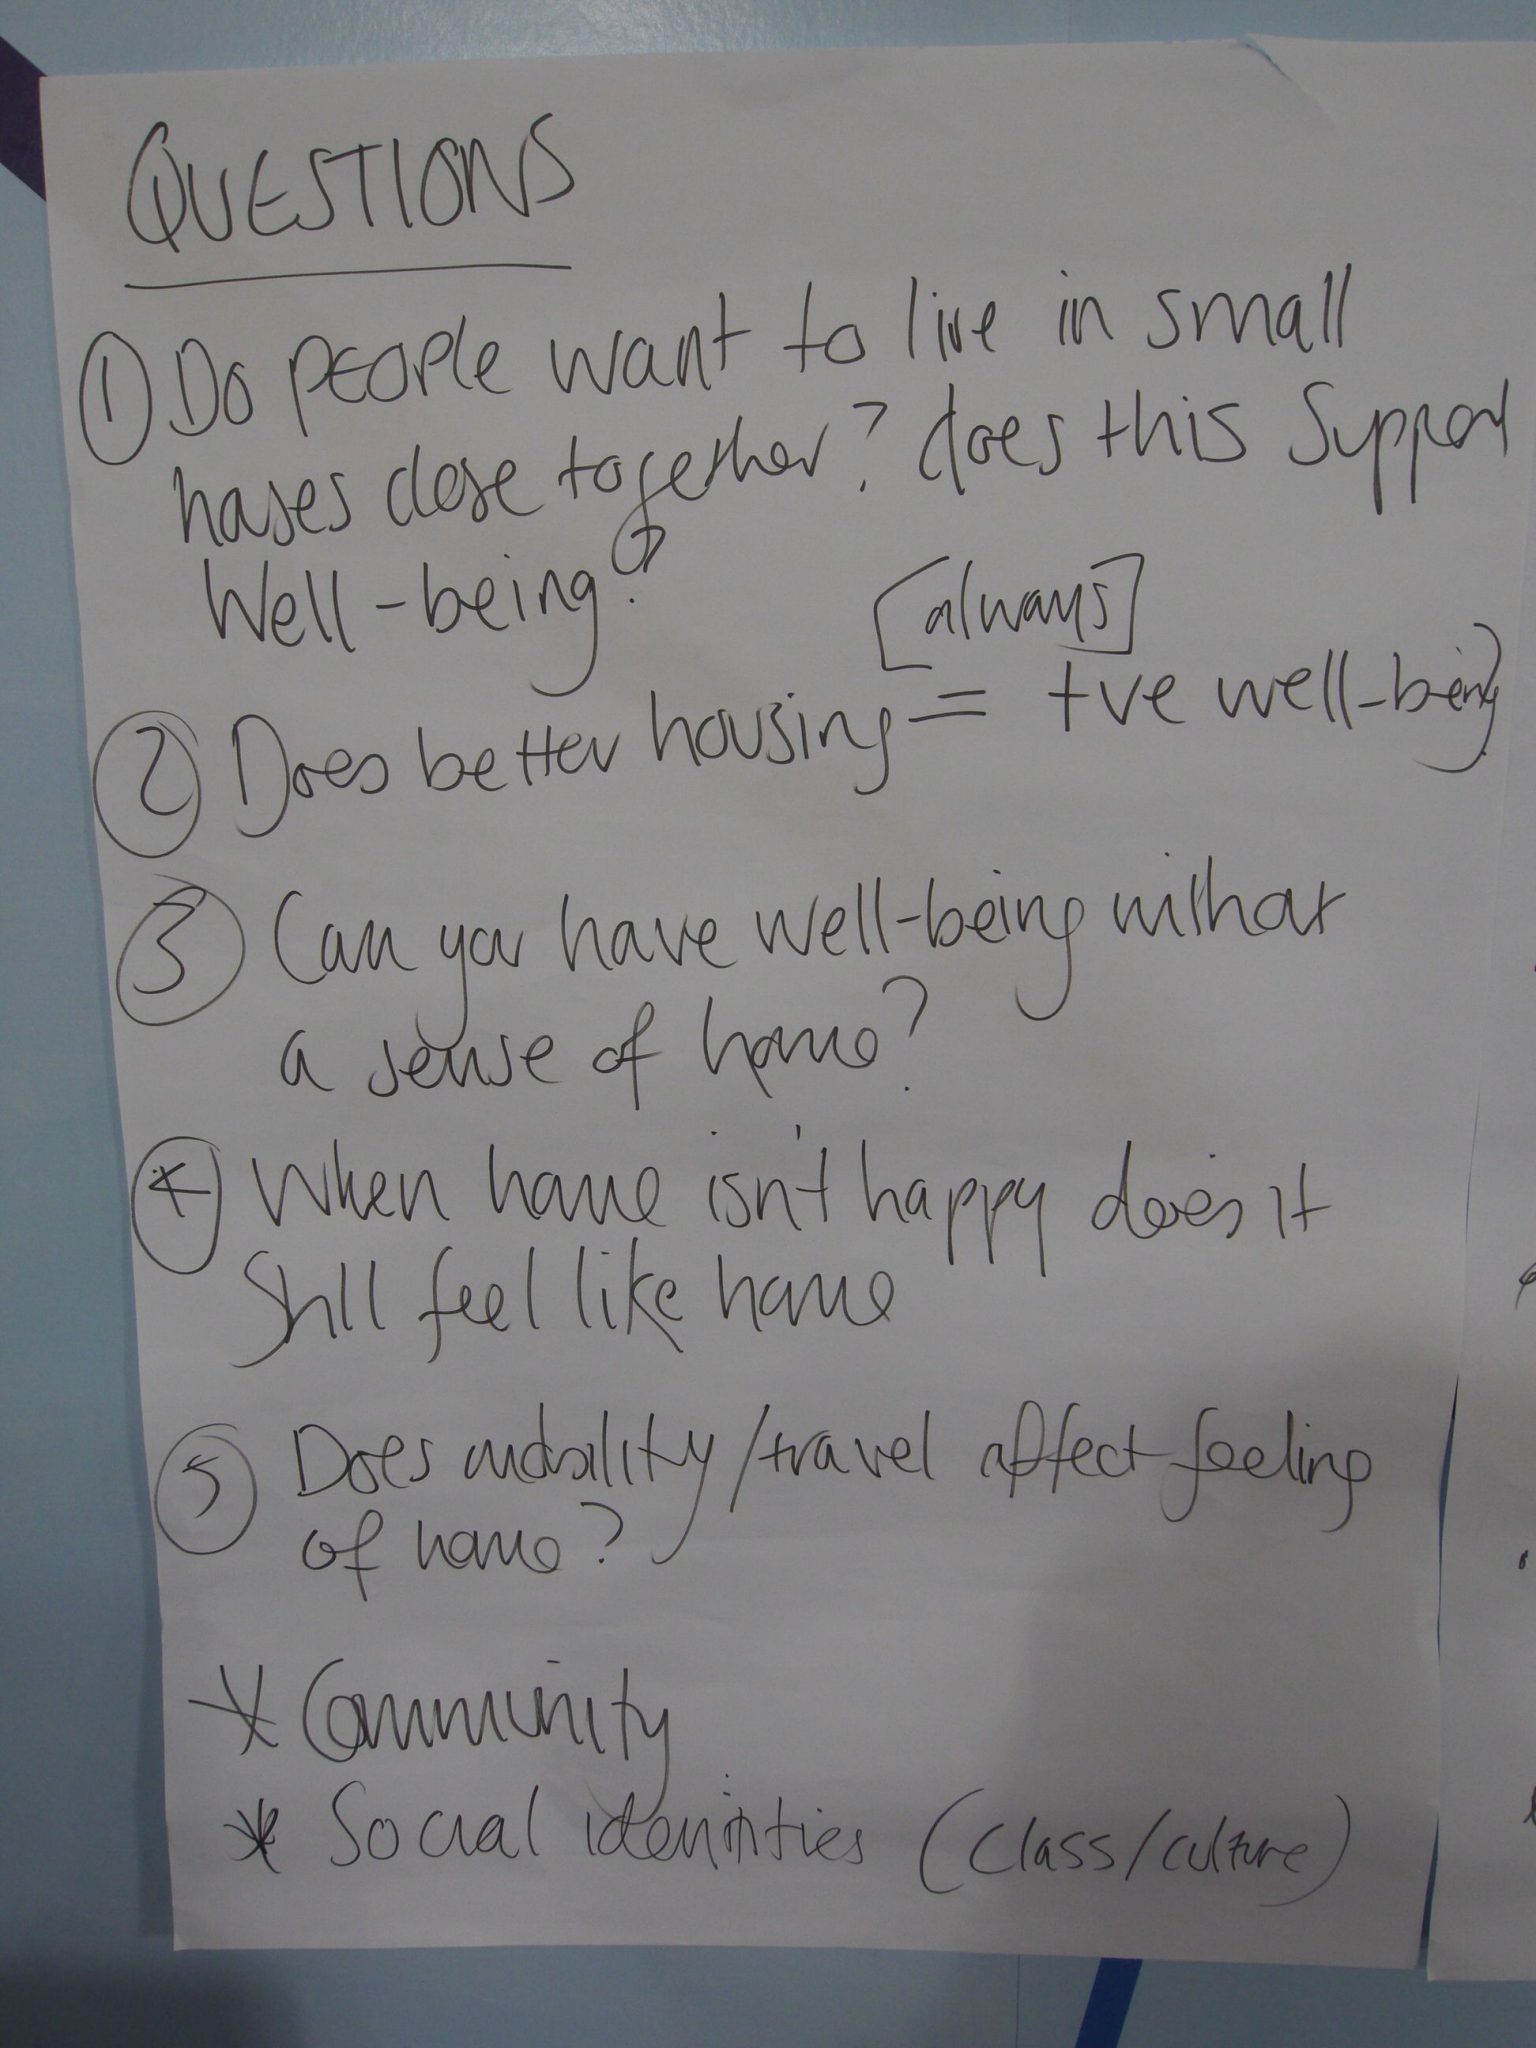 QUESTIONS
① Do people want to live in small
houses close together? does this support
Well-being?
[always]
② Does better housing = +ve well-being
③ Can you have well-being without
a sense of home?
④ When home isn't happy does it
Still feel like home
⑤ Does mobility/travel affect feeling
of home?
* Community
* Social identities (class/culture)